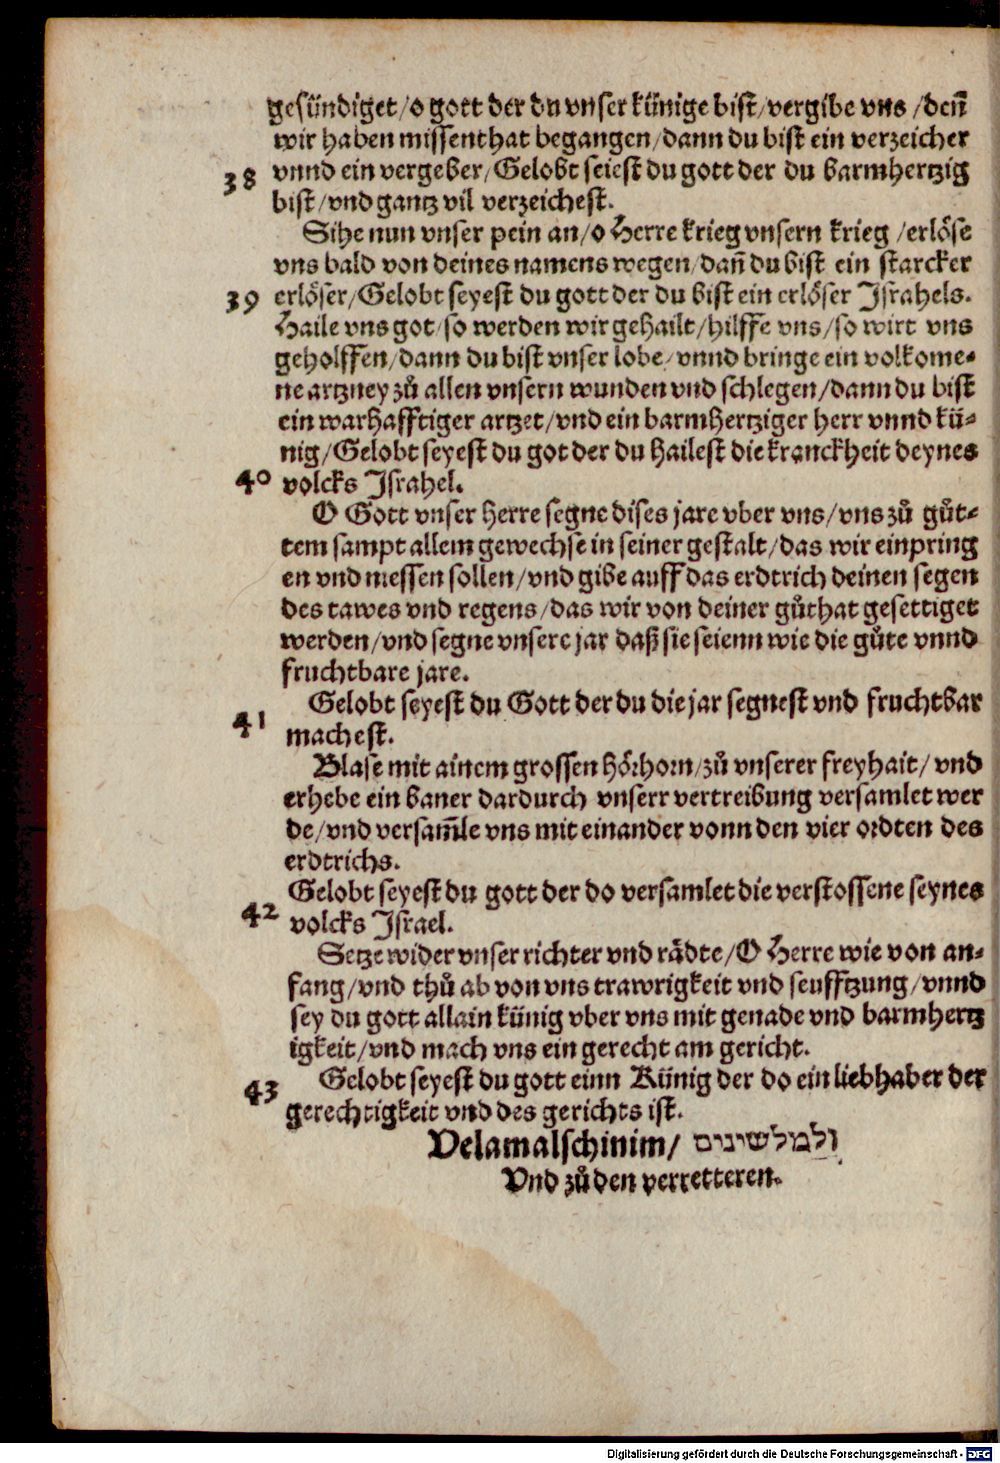 gesündiget/o gott der du vnser künige bist/vergibe vns /deñ
wir haben missenthat begangen/dann du bist ein verzeicher
38 vnnd ein vergeber/Gelobt seiest du gott der du barmhertzig
bist/vnd gantz vil verzeichest.
Sihe nun vnser pein an/o Herre krieg vnsern krieg /erlöse
vns bald von deines namens wegen/dañ du bist ein starcker
39 erlöser/Gelobt seyest du gott der du bist ein erlöser Israhels.
Haile vns got/so werden wir gehailt/hilffe vns/so wirt vns
geholffen/dann du bist vnser lobe/vnnd bringe ein volkome-
ne artzney zů allen vnsern wunden vnd schlegen/dann du bist
ein warhafftiger artzet/vnd ein barmhertziger herr vnnd kü-
nig/Gelobt seyest du got der du hailest die kranckheit deynes
40 volcks Israhel.
O Gott vnser herre segne dises jare vber vns/vns zů gůt-
tem sampt allem gewechse in seiner gestalt/das wir einpring
en vnd niessen sollen/vnd gibe auff das erdtrich deinen segen
des tawes vnd regens/das wir von deiner gůthat gesettiget
werden/vnd segne vnsere jar daß sie seienn wie die gůte vnnd
fruchtbare jare.
Gelobt seyest du Gott der du die jar segnest vnd fruchtbar
41 machest.
Blase mit ainem grossen hörhorn/zů vnserer freyhait/ vnd
erhebe ein baner dardurch vnserr vertreibung versamlet wer
de/vnd versam̃le vns mit einander vonn den vier ordten des
erdtrichs.
Gelobt seyest du gott der do versamlet die verstossene seynes
42 volcks Israel.
Setze wider vnser richter vnd rädte/O Herre wie von an-
fang/vnd thů ab von vns trawrigkeit vnd seufftzung/vnnd
sey du gott allain künig vber vns mit genade vnd barmhertz
igkeit/vnd mach vns ein gerecht am gericht.
43 Gelobt seyest du gott einn Künig der do ein liebhaber der
gerechtigkeit vnd des gerichts ist.
Velamalschinim/ ולמלשינים
Vnd zů den verretteren.
Digitalisierung gefördert durch die Deutsche Forschungsgemeinschaft - DFG